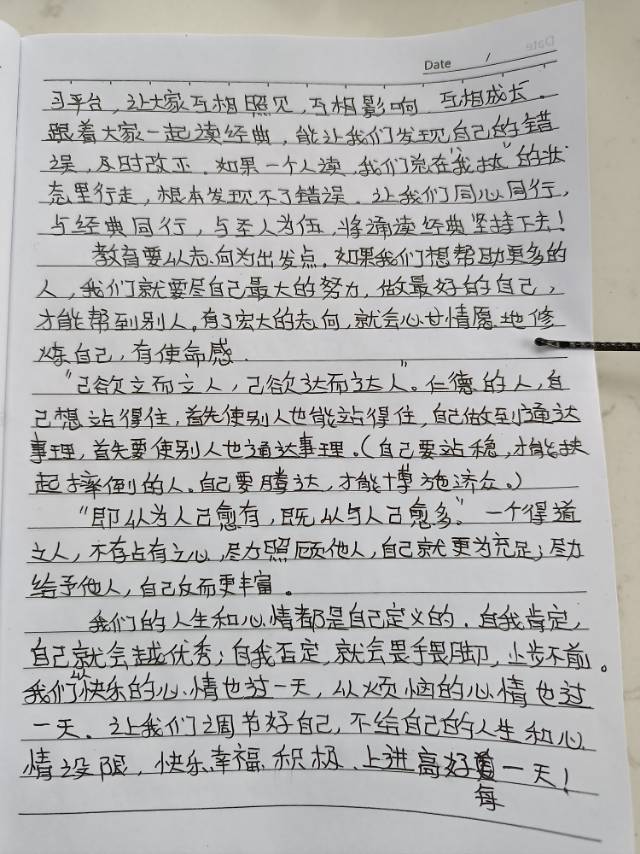 Date /
习平台，让大家互相照见，互相影响，互相成长。
跟着大家一起读经典，能让我们发现自己的错
误，及时改正。如果一个人读，我们总在“我执”的状
态里行走，根本发现不了错误。让我们同心同行，
与经典同行，与圣人为伍，将诵读经典坚持下去！
教育要从志向为出发点。如果我们想帮助更多的
人，我们就要尽自己最大的努力，做最好的自己，
才能帮到别人。有了宏大的志向，就会心甘情愿地修
炼自己，有使命感。
“己欲立而立人，己欲达而达人”。仁德的人，自
己想站得住，首先使别人也能站得住，自己做到通达
事理，首先要使别人也通达事理。（自己要站稳，才能扶
起摔倒的人。自己要腾达，才能博施济众。）
“即以为人己愈有，既以与人己愈多”。一个得道
之人，不存占有之心，尽力照顾他人，自己就更为充足；尽力
给予他人，自己反而更丰富。
我们的人生和心情都是自己定义的。自我肯定，
自己就会越优秀；自我否定，就会畏手畏脚，止步不前。
我们以快乐的心情也过一天，从烦恼的心情也过
一天。让我们调节好自己，不给自己的人生和心
情设限，快乐幸福、积极、上进高好 一天！
每